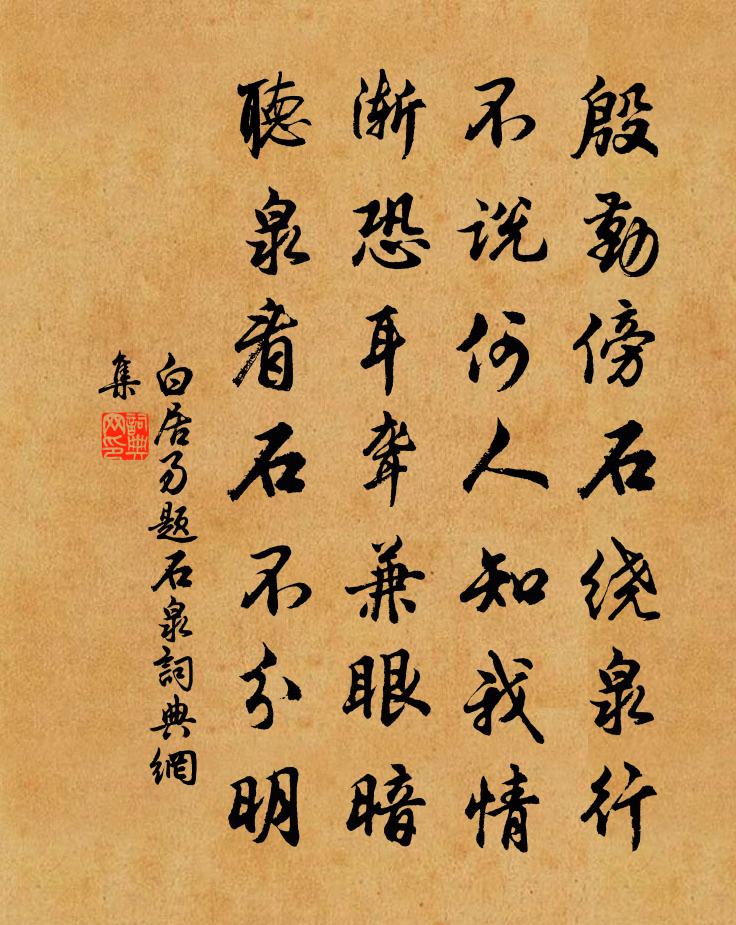 殷勤傍石绕泉行
不说何人知我情
渐恐耳聋兼眼暗
聴泉看石不分明
白居易题石泉詞典網
集
詞典
网印